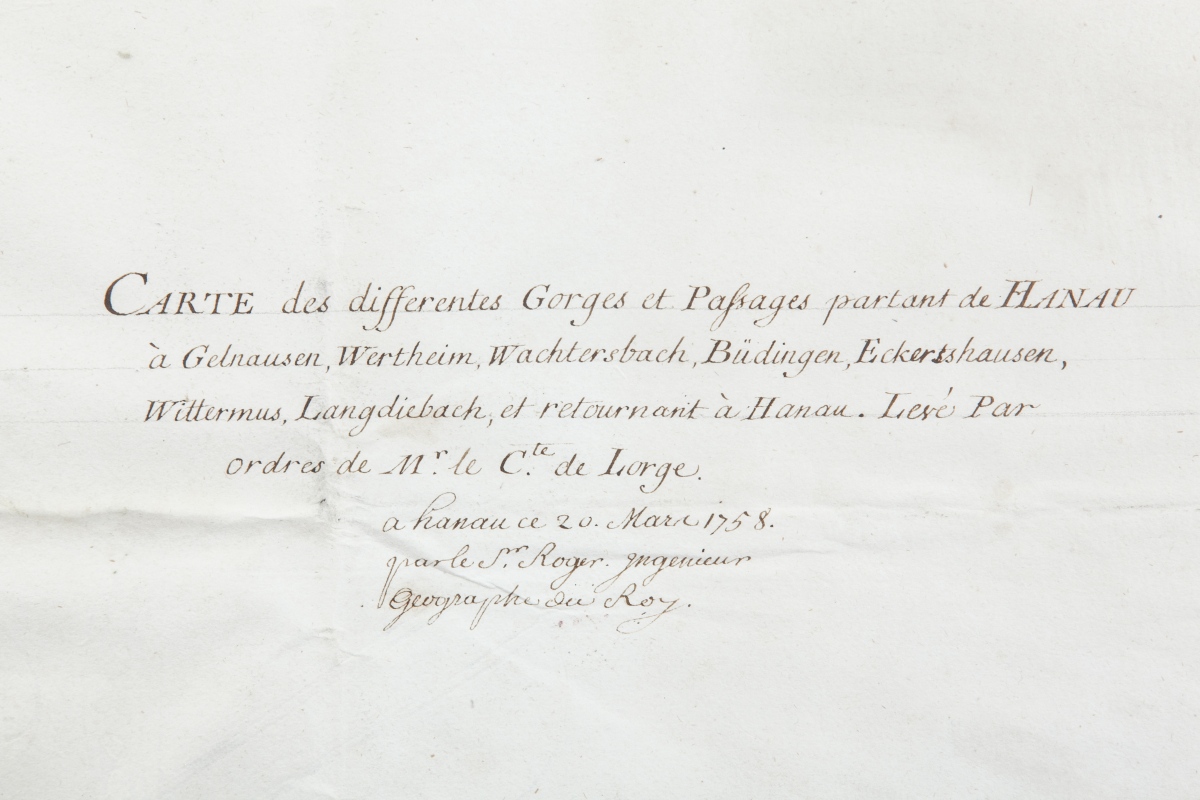 CARTE des differentes Gorges et Paſsages partant de HANAU
à Gelnausen, Wertheim, Wachtersbach, Büdingen, Eckertshausen,
Wittermus, Langdiebach, et retournant à Hanau. Levé Par
ordres de Mr. le C.te de Lorge.
a hanau ce 20. Mars 1758.
par le Sr. Roger. Ingenieur
Geographe du Roy.